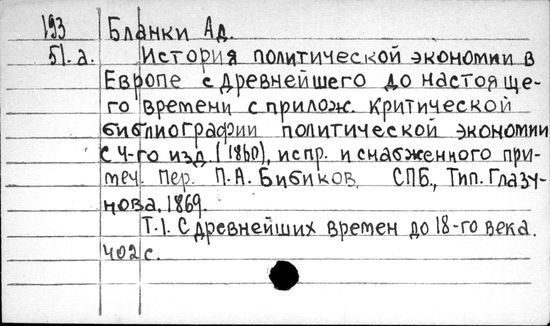 193 Бланки Ад.
51.а. История политической экономии в
Европе с древнейшего до настояще-
го времени с прилож. критической
библиографии политической экономии
с 4-го изд. (1860), испр. и снабженного при-
меч. Пер. П.А. Бибиков. СПБ., Тип. Глазу-
нова. 1869.
Т.1. С древнейших времен до 18-го века.
402 с.